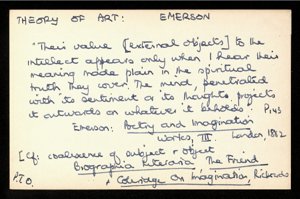 THEORY OF ART: EMERSON
"Their value [external objects] to the
intellect appears only when I hear their
meaning made plain in the spiritual
truth they cover. The mind, penetrated
with its sentiment or its thought, projects
it outwards on whatever it beholds. P.143
Emerson: Poetry and Imagination
Works, III London, 1882
[Cf. coalescence of subject & object
Biographia Literaria The Friend
& Coleridge on Imagination, Richards
P.T.O.